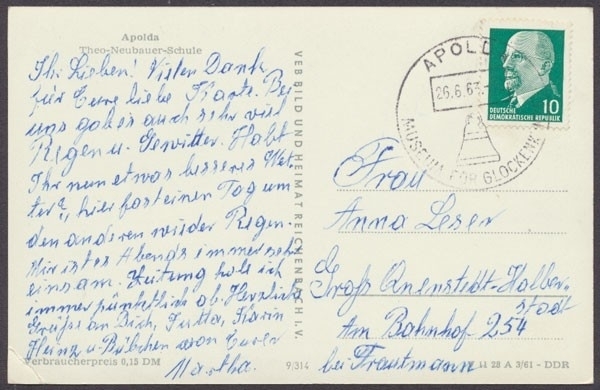 Apolda
Theo-Neubauer-Schule
Ihr Lieben! Vielen Dank
für Eure liebe Karte. Bei
uns gab es auch sehr viel
Regen u. Gewitter. Habt
Ihr nun etwas besseres Wet-
ter?, hier fast einen Tag um
den anderen wieder Regen.
Mir ist es Abends immer sehr
einsam. Zeitung hole ich
immer pünktlich ab. Herzliche
Grüsse an Dich, Jutta, Karin
Heinz u. Bübchen von Eurer
Martha.
Verbraucherpreis 0,15 DM
VEB BILD UND HEIMAT REICHENBACH I. V.
9/314
APOLDA
26.6.63
MUSEUM FÜR GLOCKENK
DEUTSCHE
DEMOKRATISCHE REPUBLIK
10
Frau
Anna Leser
Groß Quenstedt-Halber-
stadt
Am Bahnhof 254
bei Trautmann
11 28 A 3/61 - DDR